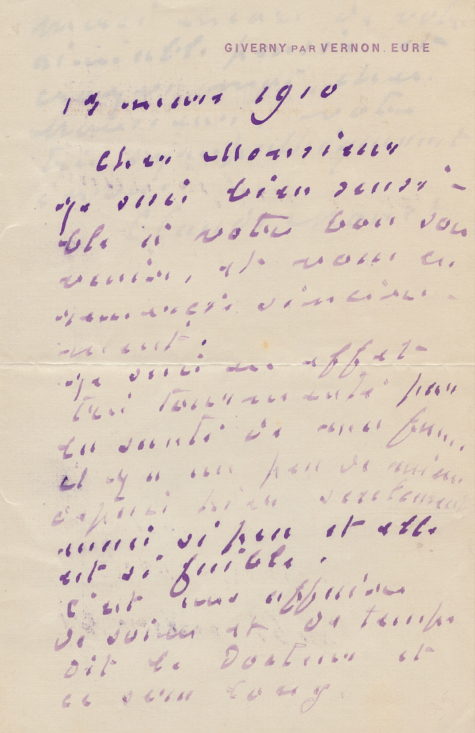 GIVERNY PAR VERNON. EURE
13 mars 1910
Cher Monsieur
je suis bien sensi-
ble à votre bon sou
venir, et vous en
remercie sincère-
ment.
je suis en effet
très tourmenté par
la santé de ma femme,
il y a un peu de mieux
depuis hier seulement
mais si peu et elle
est si faible.
C'est une affaire
de soins et de temps
dit le Docteur et
ce sera long.